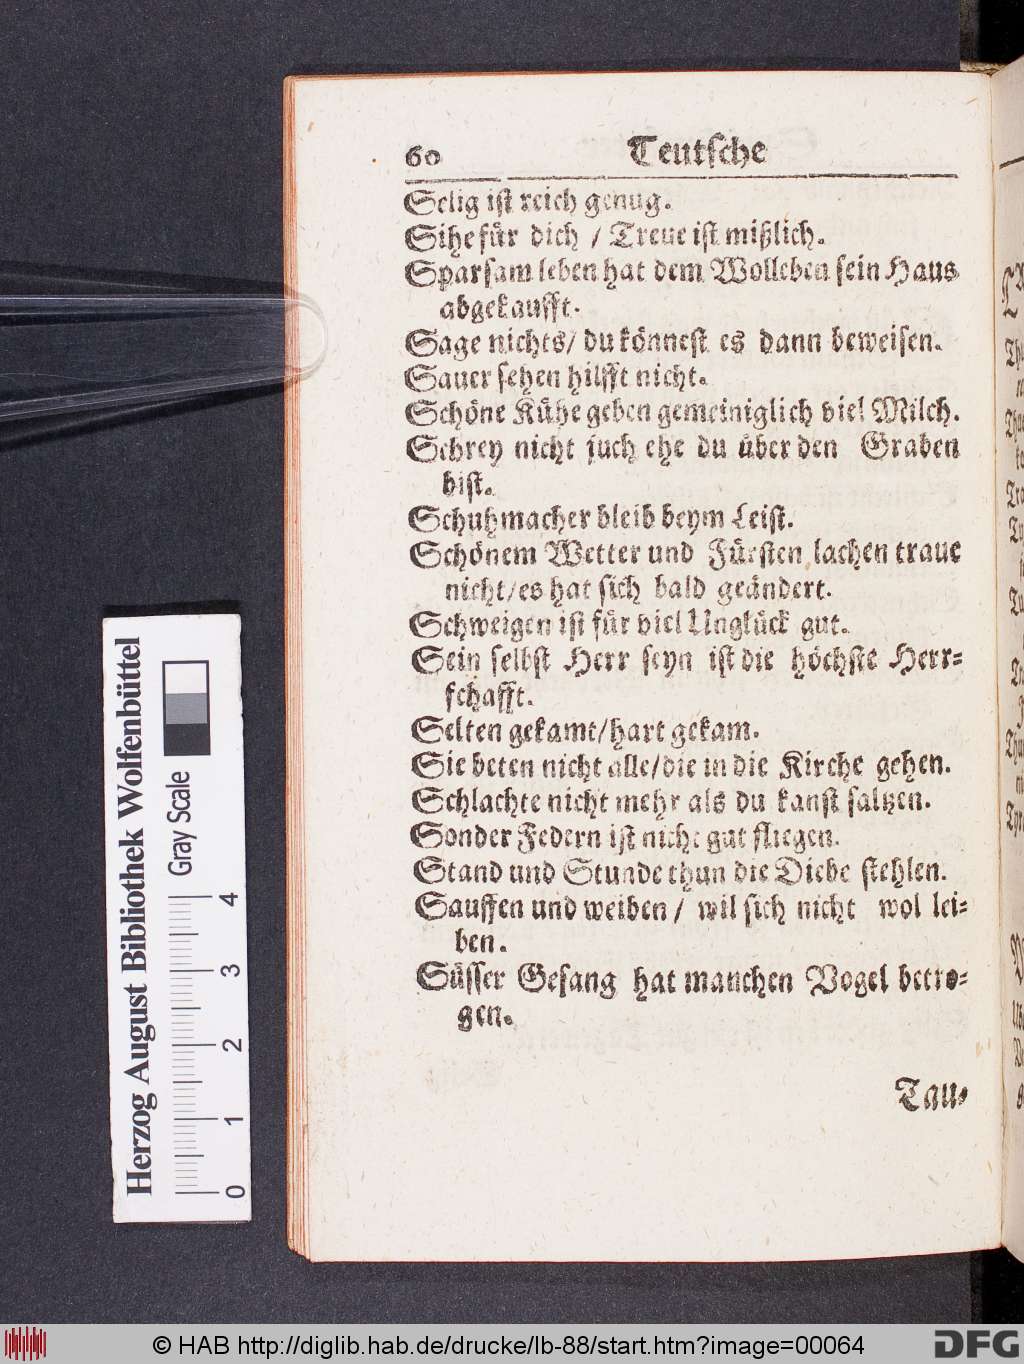 60 Teutsche
Selig ist reich genug.
Sihe für dich / Treue ist mißlich.
Sparsam leben hat dem Wolleben sein Haus
abgekaufft.
Sage nichts/ du könnest es dann beweisen.
Sauer sehen hilfft nicht.
Schöne Kühe geben gemeiniglich viel Milch.
Schrey nicht juch ehe du über den Graben
bist.
Schuhmacher bleib beym Leist.
Schönem Wetter und Fürsten lachen traue
nicht/es hat sich bald geändert.
Schweigen ist für viel Unglück gut.
Sein selbst Herr seyn ist die höchste Herr-
schafft.
Selten gekamt/hart gekam.
Sie beten nicht alle/die in die Kirche gehen.
Schlachte nicht mehr als du kanst saltzen.
Sonder Federn ist nicht gut fliegen.
Stand und Stunde thun die Diebe stehlen.
Sauffen und weiben / wil sich nicht wol lei-
ben.
Süsser Gesang hat manchen Vogel betro-
gen.
Tau-
Herzog August Bibliothek Wolfenbüttel
Gray Scale
0 1 2 3 4
© HAB http://diglib.hab.de/drucke/lb-88/start.htm?image=00064
DFG